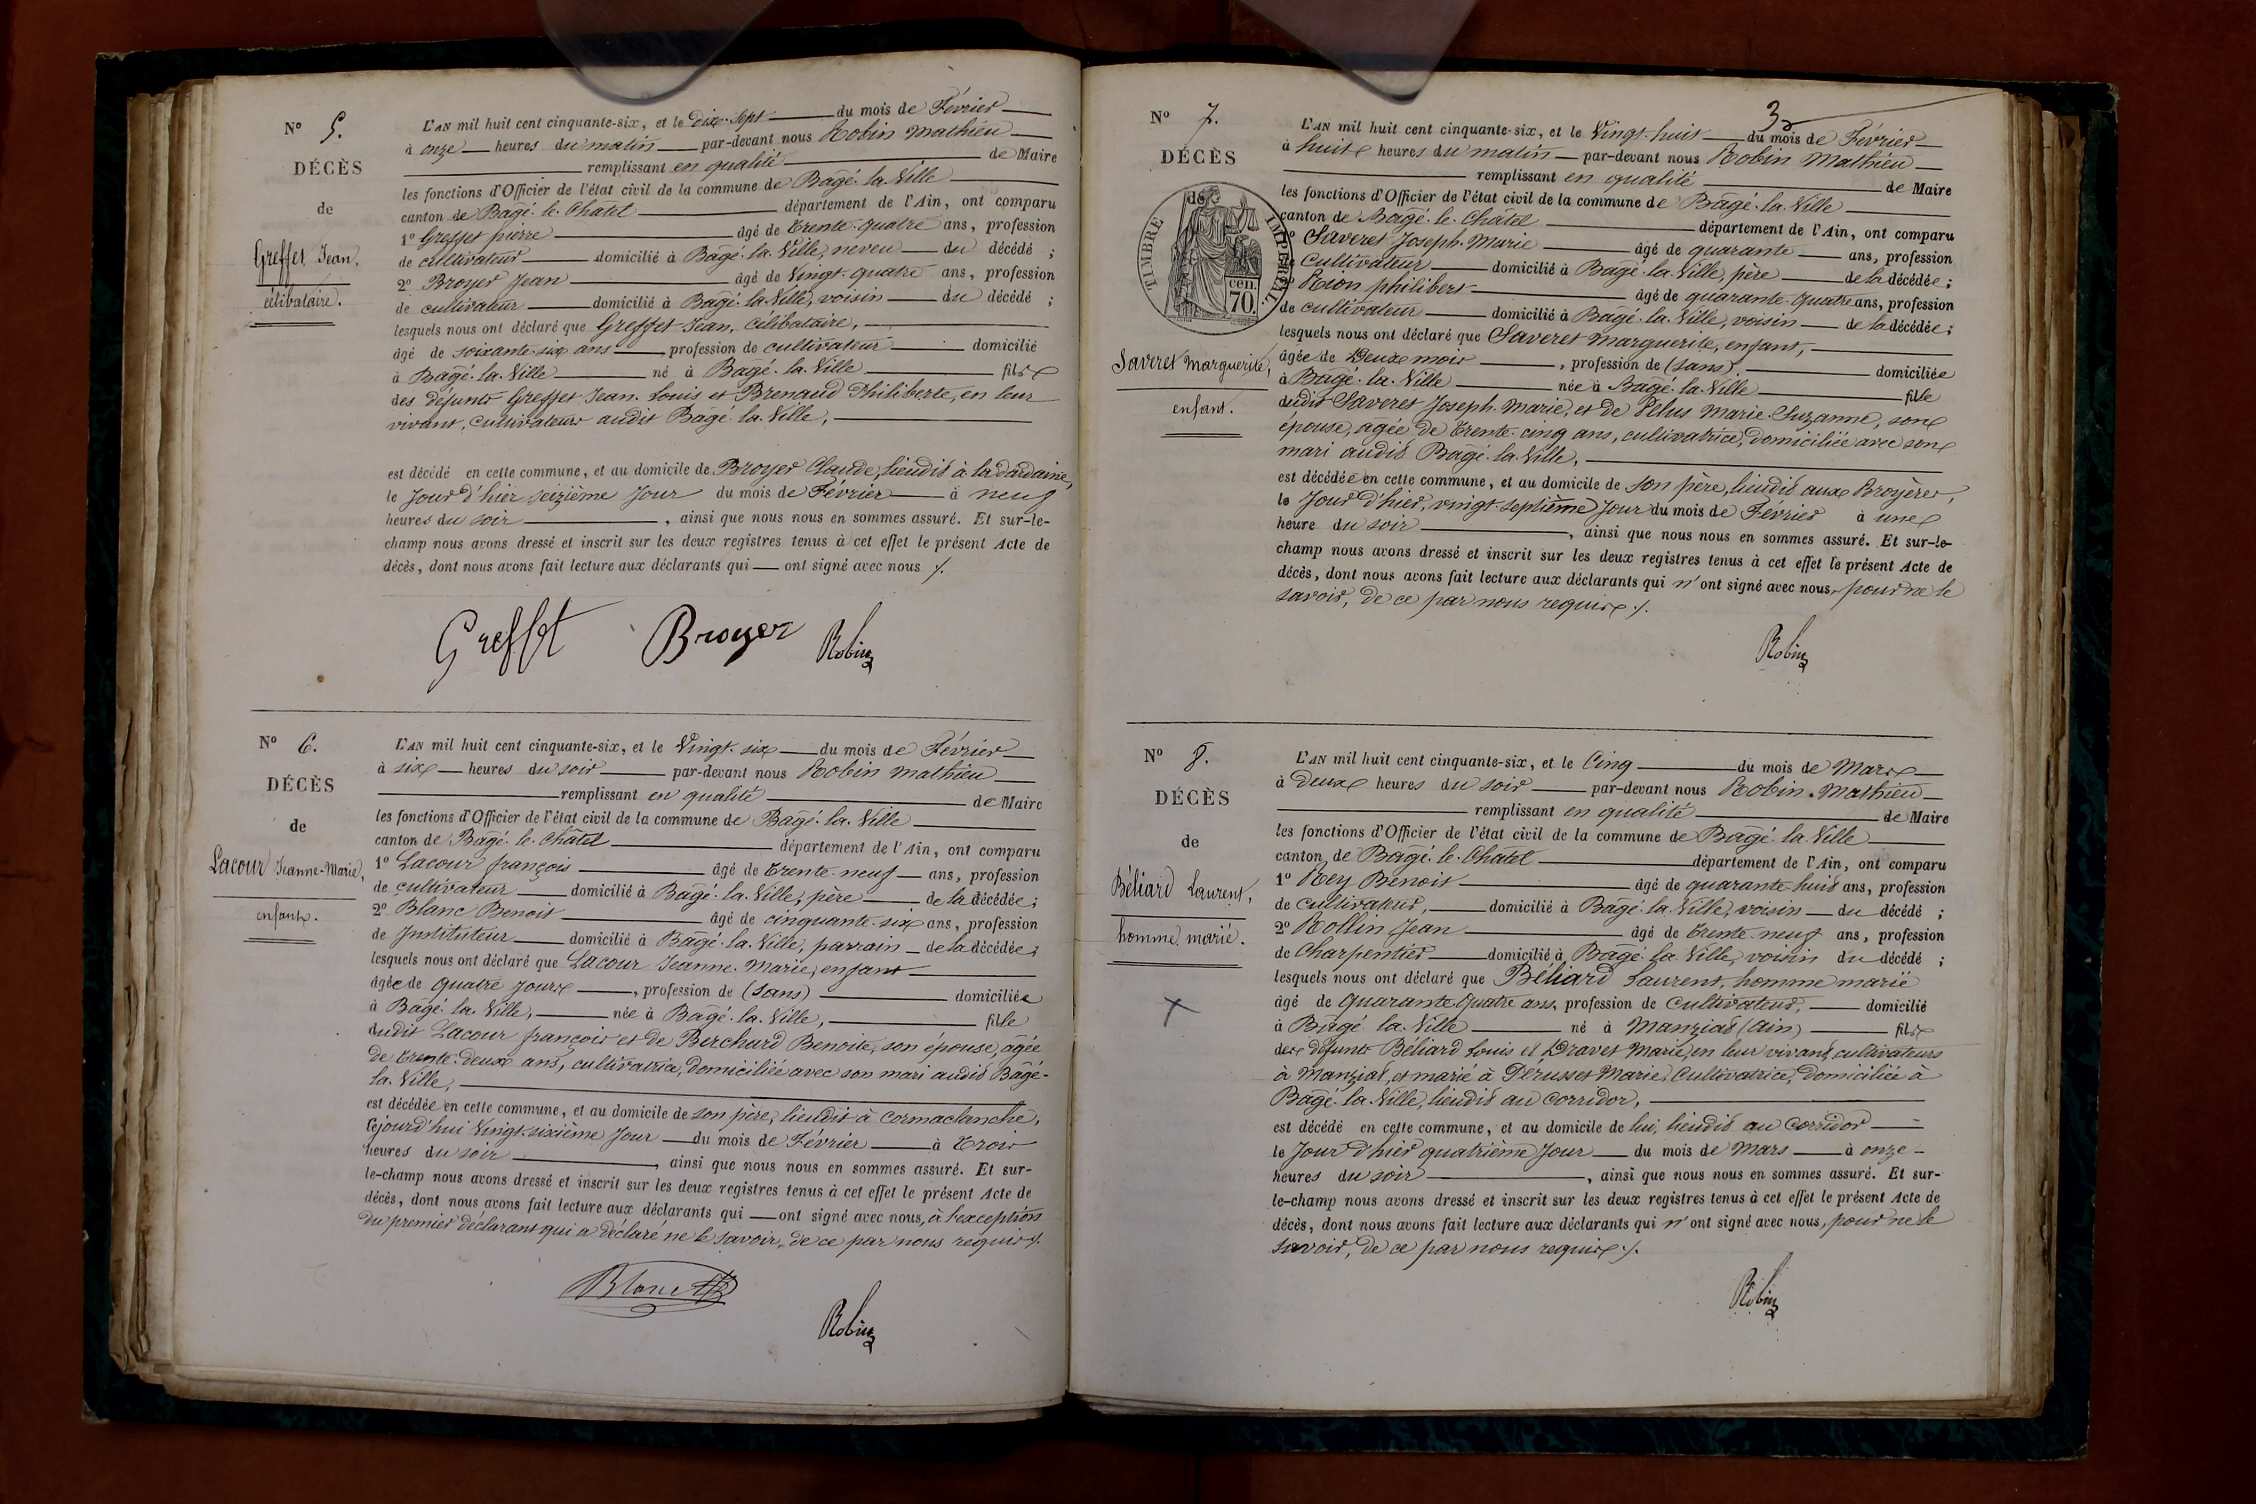 N° 5.
DÉCÈS
de
Greffet Jean,
célibataire.
L'AN mil huit cent cinquante-six, et le dix-sept du mois de Février
à onze heures du matin par-devant nous Robin Mathieu
remplissant en qualité de Maire
les fonctions d'Officier de l'état civil de la commune de Bâgé-la-Ville
canton de Bâgé-le-Châtel département de l'Ain, ont comparu
1° Greffet pierre âgé de trente-quatre ans, profession
de cultivateur domicilié à Bâgé-la-Ville, neveu du décédé ;
2° Broyer Jean âgé de vingt-quatre ans, profession
de cultivateur domicilié à Bâgé-la-Ville, voisin du décédé ;
lesquels nous ont déclaré que Greffet Jean, célibataire,
âgé de soixante-six ans, profession de cultivateur domicilié
à Bâgé-la-Ville né à Bâgé-la-Ville fils
des défunts Greffet Jean-Louis et Brenaud Philiberte, en leur
vivant, cultivateurs audit Bâgé-la-Ville,
est décédé en cette commune, et au domicile de Broyer Claude, lieudit à la dardaine,
le Jour d'hier seizième Jour du mois de Février à neuf
heures du soir, ainsi que nous nous en sommes assuré. Et sur-le-
champ nous avons dressé et inscrit sur les deux registres tenus à cet effet le présent Acte de
décès, dont nous avons fait lecture aux déclarants qui ont signé avec nous ./.
Greffet Broyer Robin
N° 6.
DÉCÈS
de
Lacour Jeanne-Marie,
enfant.
L'AN mil huit cent cinquante-six, et le Vingt-six du mois de Février
à six heures du soir par-devant nous Robin Mathieu
remplissant en qualité de Maire
les fonctions d'Officier de l'état civil de la commune de Bâgé-la-Ville
canton de Bâgé-le-Châtel département de l'Ain, ont comparu
1° Lacour françois âgé de trente-neuf ans, profession
de cultivateur domicilié à Bâgé-la-Ville, père de la décédée ;
2° Blanc Benoit âgé de cinquante-six ans, profession
de Instituteur domicilié à Bâgé-la-Ville, parrain de la décédée ;
lesquels nous ont déclaré que Lacour Jeanne-Marie, enfant
âgée de quatre jours, profession de (sans) domiciliée
à Bâgé-la-Ville, née à Bagé-la-Ville, fille
dudit Lacour françois et de Berchard Benoite, son épouse, âgée
de trente-deux ans, cultivatrice, domiciliée avec son mari audit Bâgé-
la-Ville,
est décédée en cette commune, et au domicile de son père, lieudit à Cormaclanche,
cejourd'hui vingt-sixième Jour du mois de Février à trois
heures du soir, ainsi que nous nous en sommes assuré. Et sur-
le-champ nous avons dressé et inscrit sur les deux registres tenus à cet effet le présent Acte de
décès, dont nous avons fait lecture aux déclarants qui ont signé avec nous, à l'exception
du premier déclarant qui a déclaré ne le savoir, de ce par nous requis ./.
Blanc
Robin
3
N° 7.
DÉCÈS
de
TIMBRE IMPÉRIAL
cen.
70.
Saveret Marguerite,
enfant.
L'AN mil huit cent cinquante-six, et le Vingt-huit du mois de Février
à huit heures du matin par-devant nous Robin Mathieu
remplissant en qualité de Maire
les fonctions d'Officier de l'état civil de la commune de Bâgé-la-Ville
canton de Bâgé-le-Châtel département de l'Ain, ont comparu
1° Saveret Joseph-Marie âgé de quarante ans, profession
de Cultivateur domicilié à Bagé-la-Ville, père de la décédée ;
2° Rion philibert âgé de quarante-quatre ans, profession
de cultivateur domicilié à Bagé-la-Ville, voisin de la décédée ;
lesquels nous ont déclaré que Saveret Marguerite, enfant,
âgée de Deux mois, profession de (sans). domiciliée
à Bâgé-la-Ville née à Bagé-la-Ville fille
dudit Saveret Joseph-Marie, et de Pelus Marie-Suzanne, son
épouse, agée de trente-cinq ans, cultivatrice, domiciliée avec son
mari audit Bagé-la-Ville,
est décédée en cette commune, et au domicile de son père, lieudit aux Broyères,
le Jour d'hier, vingt-septième Jour du mois de Février à une
heure du soir, ainsi que nous nous en sommes assuré. Et sur-le-
champ nous avons dressé et inscrit sur les deux registres tenus à cet effet le présent Acte de
décès, dont nous avons fait lecture aux déclarants qui n'ont signé avec nous, pour ne le
savoir, de ce par nous requis ./.
Robin
N° 8.
DÉCÈS
de
Béliard Laurent,
homme marié.
L'AN mil huit cent cinquante-six, et le Cinq du mois de Mars
à deux heures du soir par-devant nous Robin Mathieu
remplissant en qualité de Maire
les fonctions d'Officier de l'état civil de la commune de Bagé-la-Ville
canton de Bagé-le-Châtel département de l'Ain, ont comparu
1° Rey Benoit âgé de quarante-huit ans, profession
de cultivateur, domicilié à Bâgé-la-Ville, voisin du décédé ;
2° Rollin Jean âgé de trente-neuf ans, profession
de Charpentier domicilié à Bâgé-la-Ville, voisin du décédé ;
lesquels nous ont déclaré que Béliard Laurent, homme marié
âgé de quarante-quatre ans, profession de cultivateur, domicilié
à Bâgé-la-Ville né à Manziat (Ain) fils
des défunts Béliard Louis et Dravet Marie, en leur vivant, cultivateurs
à Manziat, et marié à Pérusset Marie, Cultivatrice, domiciliée à
Bagé-la-Ville, lieudit au Corridor,
est décédé en cette commune, et au domicile de lui, lieudit au Corridor
le Jour d'hier quatrième Jour du mois de Mars à onze
heures du soir, ainsi que nous nous en sommes assuré. Et sur-
le-champ nous avons dressé et inscrit sur les deux registres tenus à cet effet le présent Acte de
décès, dont nous avons fait lecture aux déclarants qui n'ont signé avec nous, pour ne le
savoir, de ce par nous requis ./.
Robin